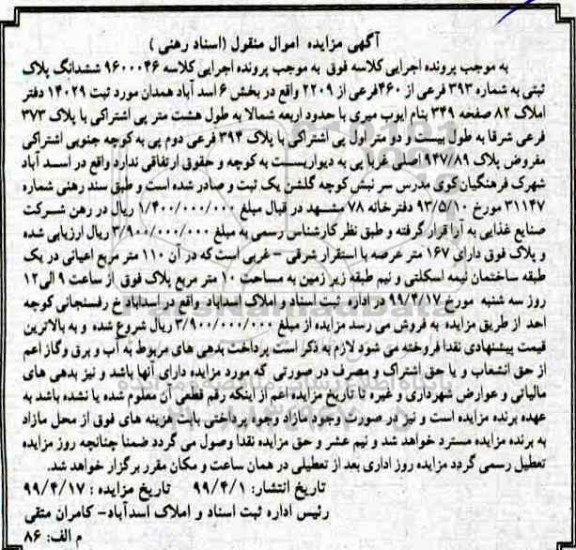 آگهی مزایده اموال منقول (اسناد رهنی)
به موجب پرونده اجرایی کلاسه فوق به موجب پرونده اجرایی کلاسه ۹۶۰۰۰۴۶ ششدانگ پلاک
ثبتی به شماره ۳۹۳ فرعی از ۴۶۰فرعی از ۲۲۰۹ واقع در بخش ۶ اسد آباد همدان مورد ثبت ۱۴۰۲۹ دفتر
املاک ۸۲ صفحه ۳۴۹ بنام ایوب میری با حدود اربعه شمالا به طول هشت متر پی اشتراکی با پلاک ۳۷۳
فرعی شرقا به طول بیست و دو متر اول پی اشتراکی با پلاک ۳۹۴ فرعی دوم پی به کوچه جنوبی اشتراکی
مفروض پلاک ۹۴۷/۸۹ اصلی غربا پی به دیواریست به کوچه و حقوق ارتفاقی ندارد واقع در اسد آباد
شهرک فرهنگیان کوی مدرس سر نبش کوچه گلشن یک ثبت و صادر شده است و طبق سند رهنی شماره
۳۱۱۴۷ مورخ ۹۳/۵/۱۰ دفتر خانه ۷۸ مشهد در قبال مبلغ ۱/۴۰۰/۰۰۰/۰۰۰ ریال در رهن شرکت
صنایع غذایی به آرا قرار گرفته و طبق نظر کارشناس رسمی به مبلغ ۳/۹۰۰/۰۰۰/۰۰۰ ریال ارزیابی شده
و پلاک فوق دارای ۱۶۷ متر عرصه با استقرار شرقی - غربی است که در آن ۱۱۰ متر مربع اعیانی در یک
طبقه ساختمان نیمه اسکلتی و نیم طبقه زیر زمین به مساحت ۱۰ متر مربع پلاک فوق از ساعت ۹ الی۱۲
روز سه شنبه مورخ ۹۹/۴/۱۷ در اداره ثبت اسناد و املاک اسداباد واقع در اسداباد خ رفسنجانی کوچه
احد از طریق مزایده به فروش می رسد مزایده از مبلغ ۳/۹۰۰/۰۰۰/۰۰۰ ریال شروع شده و به بالاترین
قیمت پیشنهادی نقدا فروخته می شود لازم به ذکر است پرداخت بدهی های مربوط به آب و برق وگاز اعم
از حق انشعاب و یا حق اشتراک و مصرف در صورتی که مورد مزایده دارای آنها باشد و نیز بدهی های
مالیاتی و عوارض شهرداری و غیره تا تاریخ مزایده اعم از اینکه رقم قطعی آن معلوم شده یا نشده باشد به
عهده برنده مزایده است و نیز در صورت وجوه مازاد وجوه پرداختی بابت هزینه های فوق از محل مازاد
به برنده مزایده مسترد خواهد شد و نیم عشر و حق مزایده نقدا وصول می گردد ضمنا چنانچه روز مزایده
تعطیل رسمی گردد مزایده روز اداری بعد از تعطیلی در همان ساعت و مکان مقرر برگزار خواهد شد.
تاریخ انتشار: ۹۹/۴/۱ تاریخ مزایده : ۹۹/۴/۱۷
رئیس اداره ثبت اسناد و املاک اسدآباد- کامران متقی
م الف: ۸۶